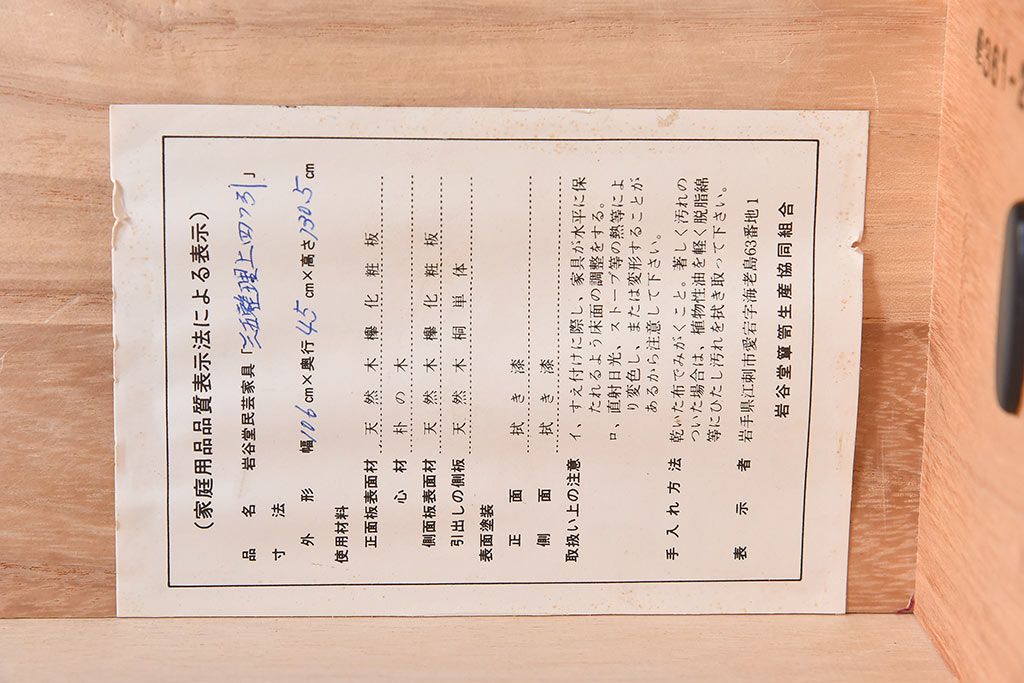 (家庭用品品質表示法による表示)
品名 岩谷堂民芸家具「三五整理上四ツ引」
寸法
外形 幅106cm×奥行45cm×高さ130.5cm
使用材料
正面板表面材 天然木欅化粧板
心材 朴の木
側面板表面材 天然木欅化粧板
引出しの側板 天然木桐単体
表面塗装
正面 拭き漆
側面 拭き漆
取扱い上の注意 イ、すえ付けに際し、家具が水平に保
たれるよう床面の調整をする。
ロ、直射日光、ストーブ等の熱等によ
り変色し、または変形することが
あるから注意して下さい。
手入れ方法 乾いた布でみがくこと。著しく汚れの
ついた場合は、植物性油を軽く脱脂綿
等にひたし汚れを拭き取って下さい。
表示者 岩手県江刺市愛宕字海老島63番地1
岩谷堂簞笥生産協同組合